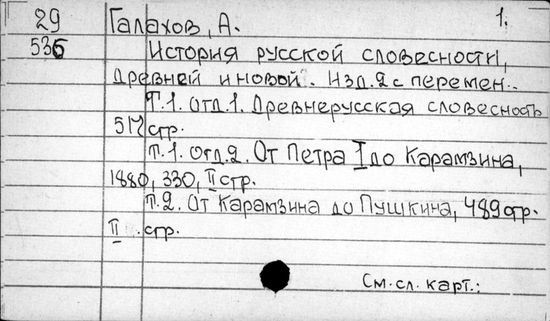 29 Галахов, А. 1.
536 История русской словесности,
древней и новой. Изд. 2 с перемен..
Т.1. отд.1. Древнерусская словесность
517 стр.
т.1. отд.2. От Петра I до Карамзина,
1880, 330, II стр.
т.2. От Карамзина до Пушкина, 489 стр.
II стр.
См. сл. карт.: